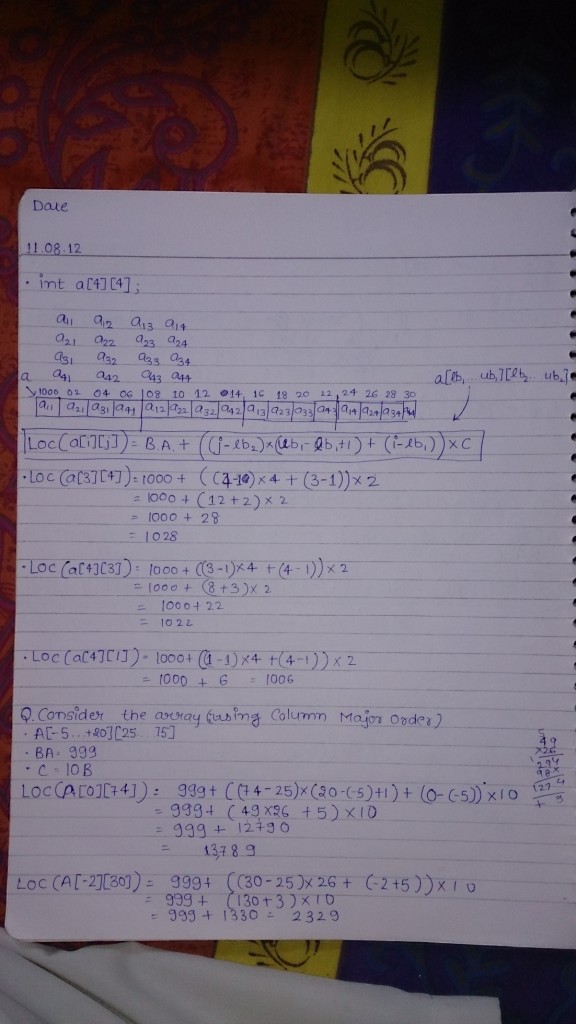 Date
11.08.12
• int a[4][4];
a11 a12 a13 a14
a21 a22 a23 a24
a31 a32 a33 a34
a41 a42 a43 a44
a
a[lb1... ub1][lb2... ub2]
1000 02 04 06 08 10 12 14 16 18 20 22 24 26 28 30
a11 a21 a31 a41 a12 a22 a32 a42 a13 a23 a33 a43 a14 a24 a34 a44
Loc(a[i][j]) = B.A. + ((j-lb2)×(ub1-lb1+1) + (i-lb1))×C
• Loc(a[3][4]) = 1000 + ((4-1)×4 + (3-1))×2
= 1000 + (12+2)×2
= 1000 + 28
= 1028
• Loc(a[4][3]) = 1000 + ((3-1)×4 + (4-1))×2
= 1000 + (8+3)×2
= 1000+22
= 1022
• Loc(a[4][1]) = 1000+ ((1-1)×4 +(4-1))×2
= 1000 + 6 = 1006
Q. Consider the array (using Column Major Order)
• A[-5...+20][25... 75]
• BA= 999
• C = 10B
Loc(A[0][74]) = 999+ ((74-25)×(20-(-5)+1) + (0-(-5))×10
= 999+ (49×26 +5)×10
= 999 + 12790
= 13789
5
49
×26
294
98×
1274
+ 5
Loc(A[-2][30]) = 999+ ((30-25)×26 + (-2+5))×10
= 999 + (130+3)×10
= 999 + 1330 = 2329